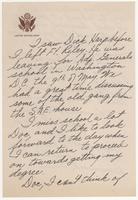 I saw Dick Harp before
I left Ft. Riley. He was
leaving for Adj. Generals
school in Washington
D.C. the 9th of May. We
had a great time discussing
some of the old gang from
the S.A.E. house
I miss school a lot
Doc, and I like to look
forward to the day when
I can return to proceed
on towards getting my
degree.
Doc, I can't think of